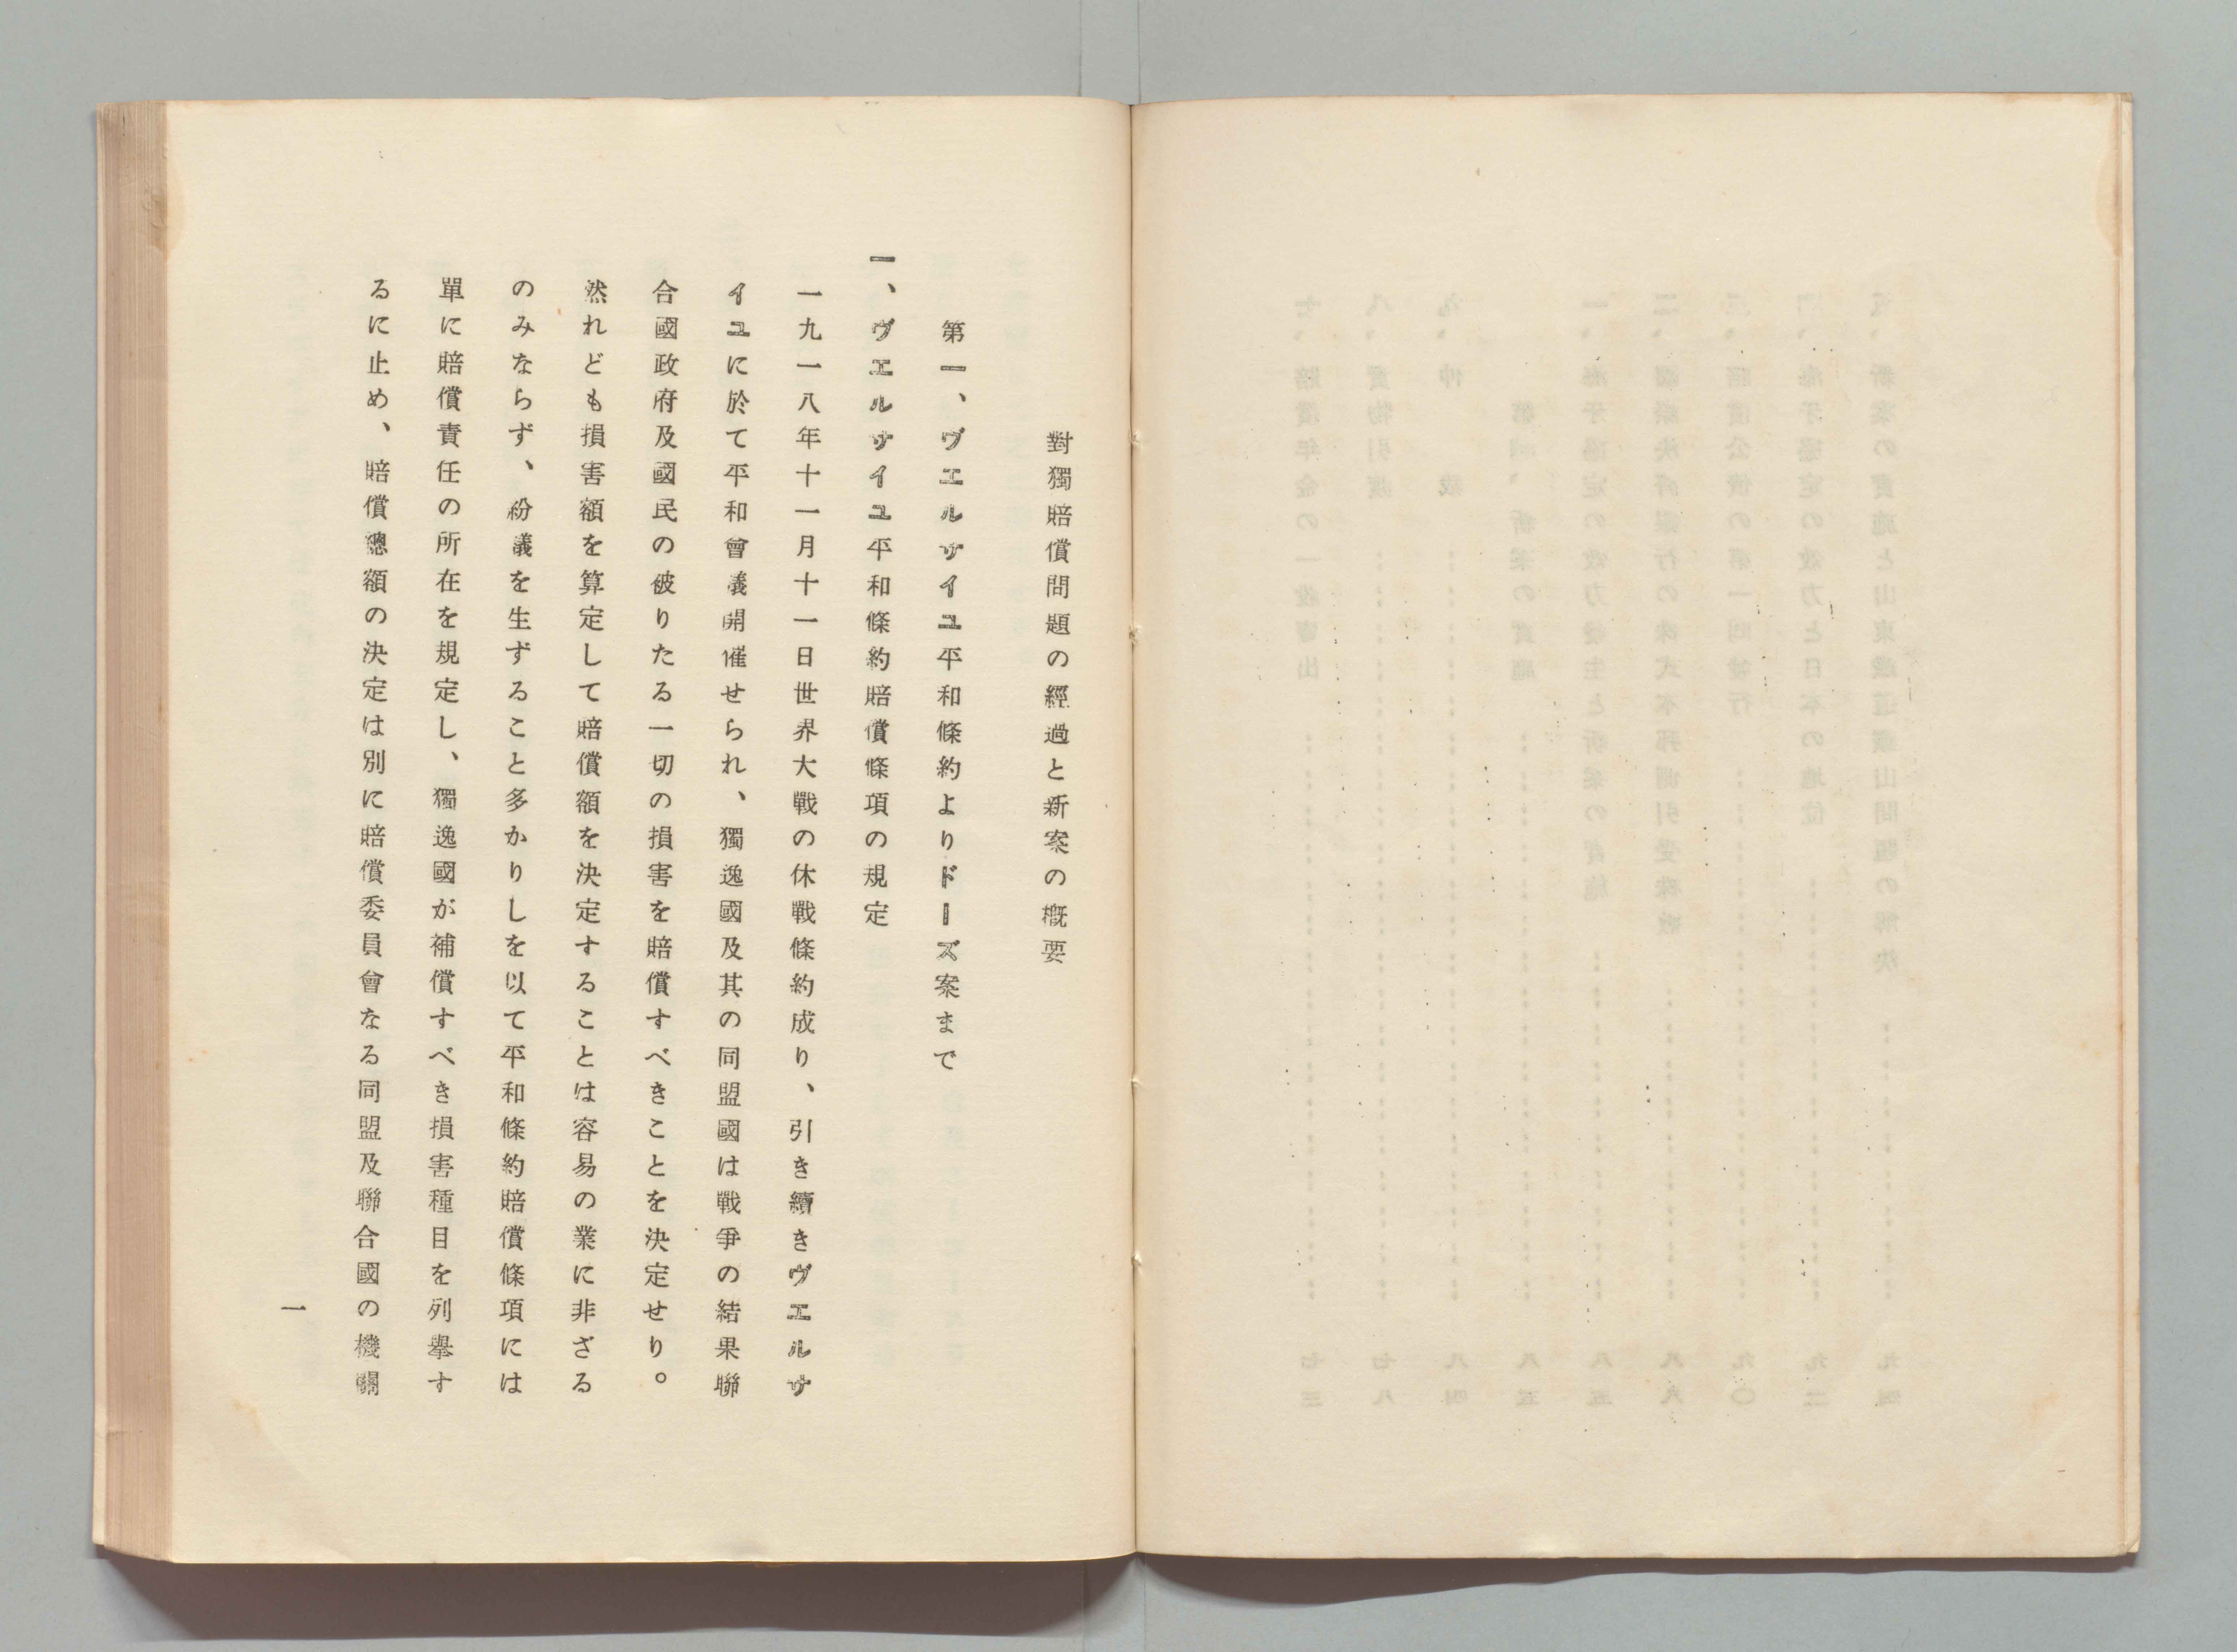 對獨賠償問題の經過と新案の概要
第一、ヴエルサイユ平和條約よりドーズ案まで
一、ヴエルサイユ平和條約賠償條項の規定
一九一八年十一月十一日世界大戰の休戰條約成り、引き續きヴエルサ
イユに於て平和會議開催せられ、獨逸國及其の同盟國は戰爭の結果聯
合國政府及國民の被りたる一切の損害を賠償すべきことを決定せり。
然れども損害額を算定して賠償額を決定することは容易の業に非ざる
のみならず、紛議を生ずること多かりしを以て平和條約賠償條項には
單に賠償責任の所在を規定し、獨逸國が補償すべき損害種目を列擧す
るに止め、賠償總額の決定は別に賠償委員會なる同盟及聯合國の機關
一